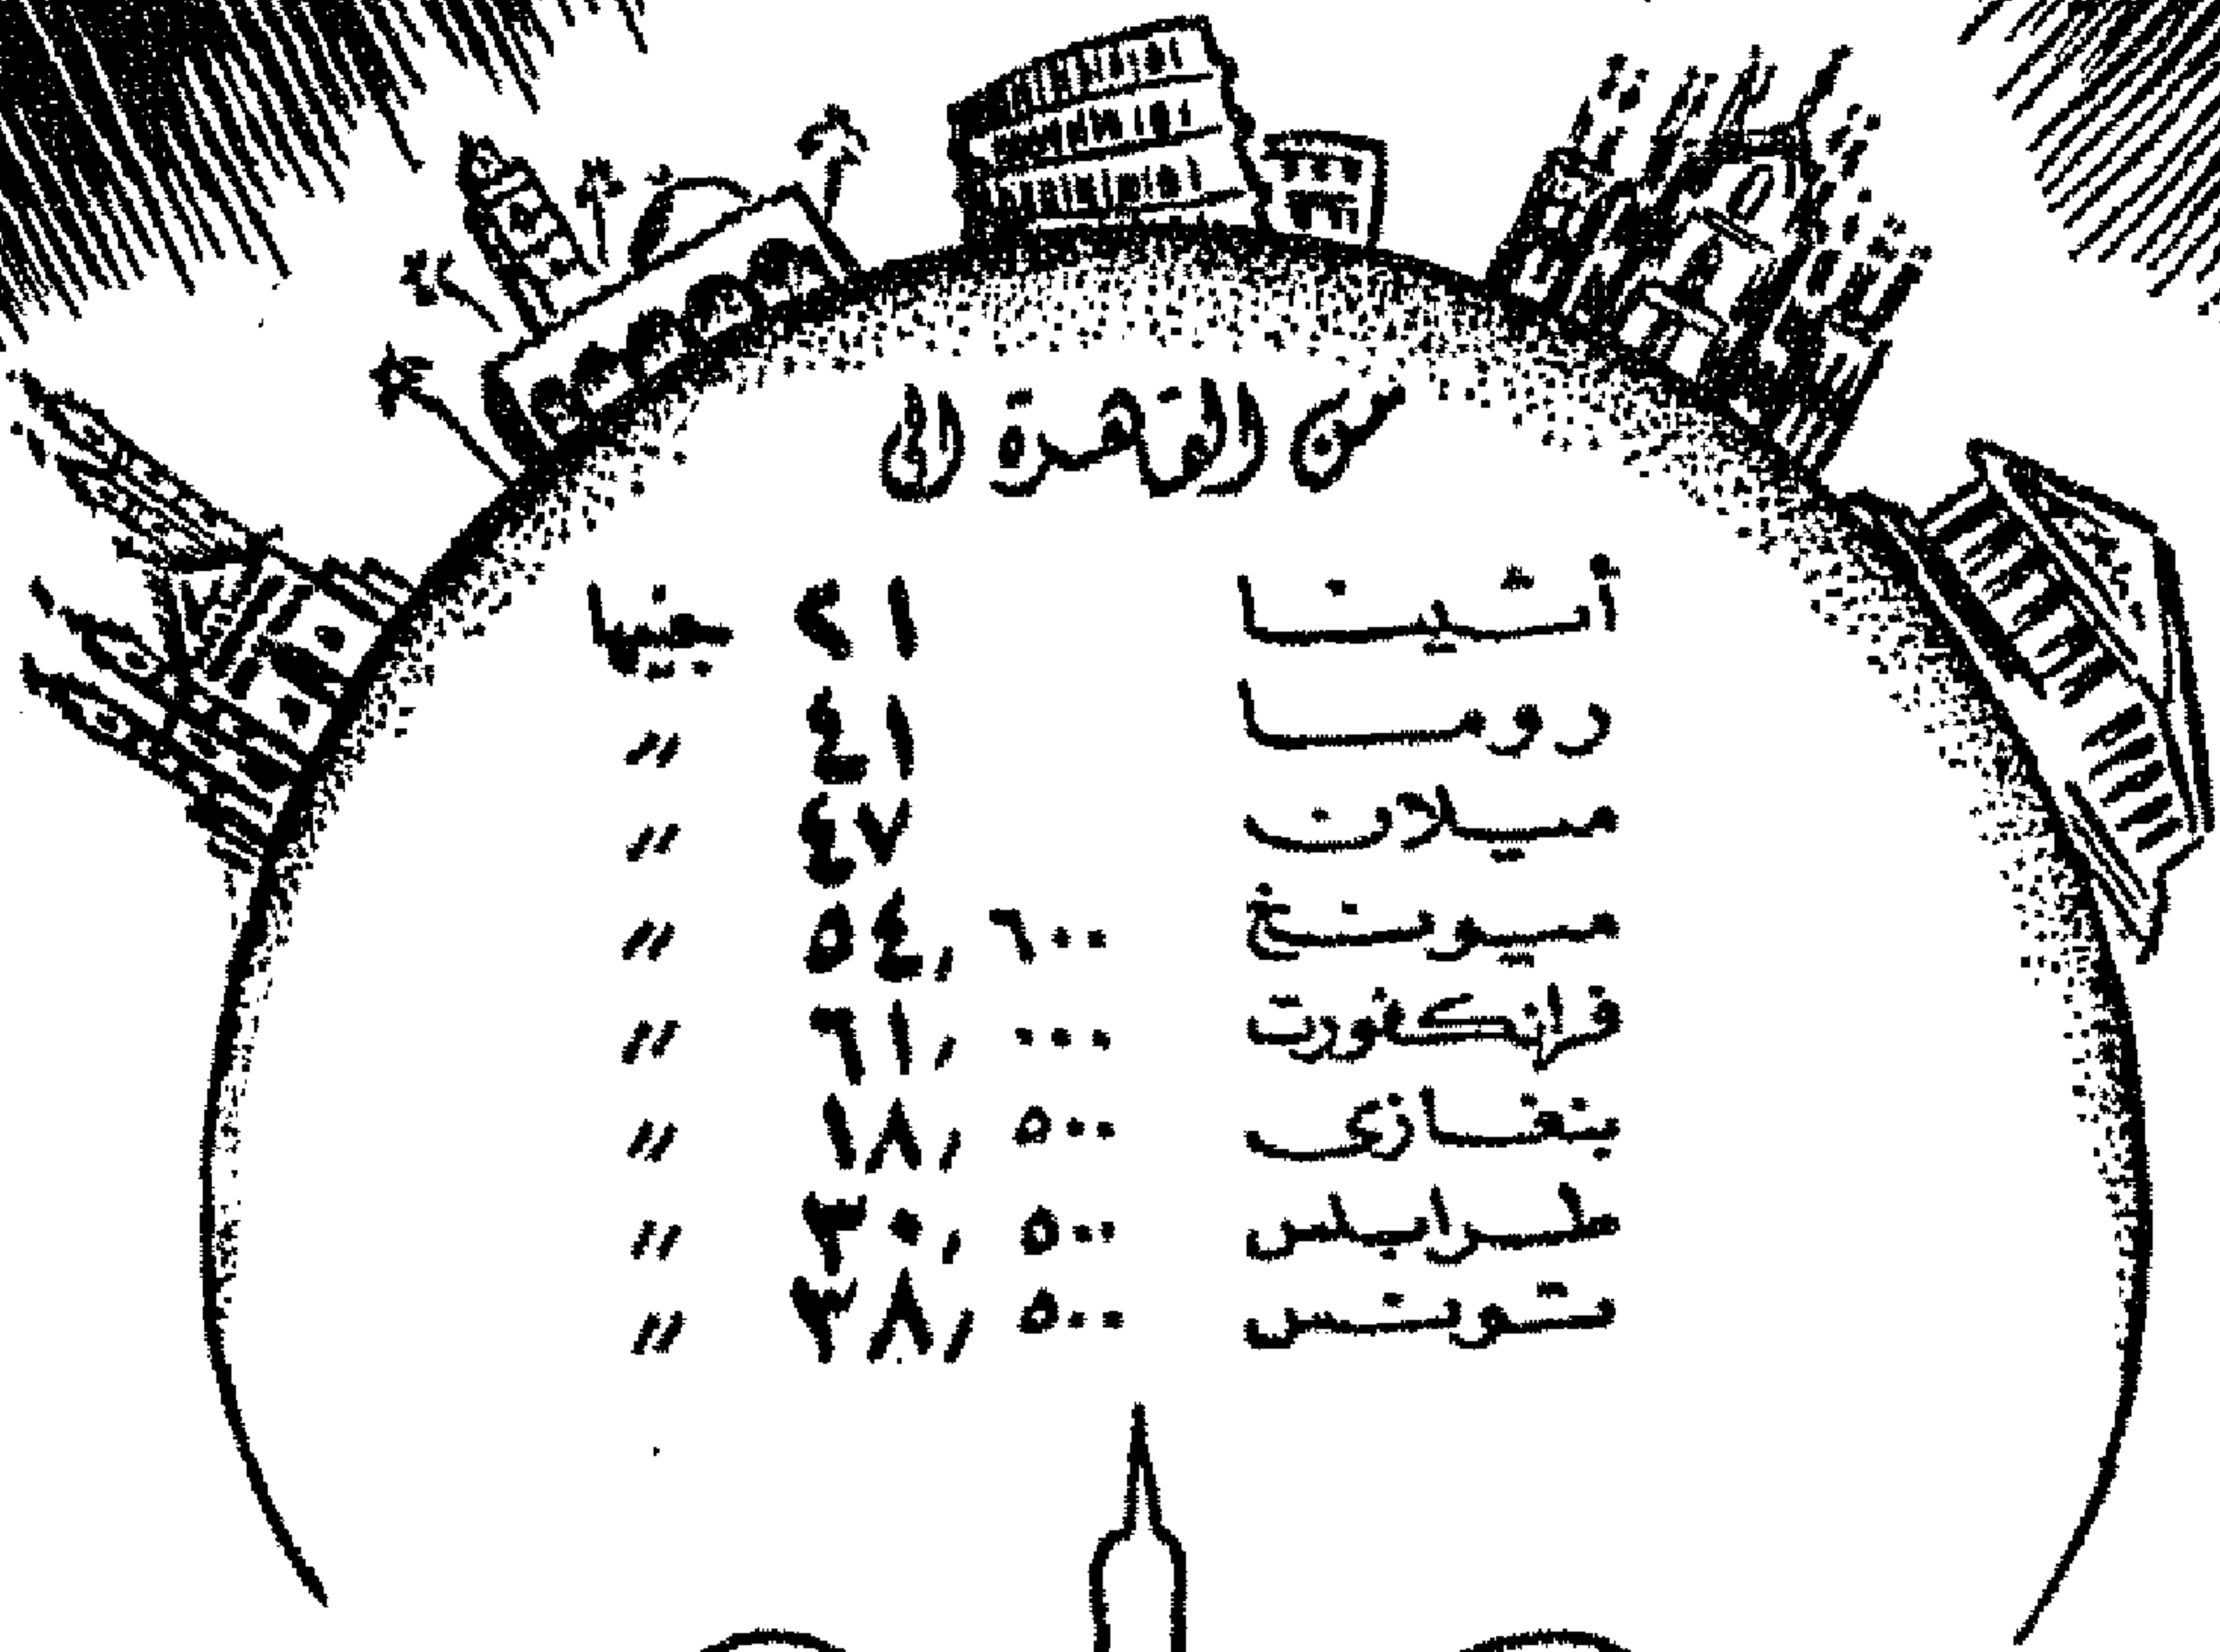 من القاهرة الى
أثينا جنيها
روما ٤١ "
ميلان ٤٧ "
ميونخ ٥٤,٦٠٠ "
فرانكفورت ٦١,٠٠٠ "
بنغازى ١٨,٥٠٠ "
طرابلس ٢٠,٥٠٠ "
تونس ٢٨,٥٠٠ "